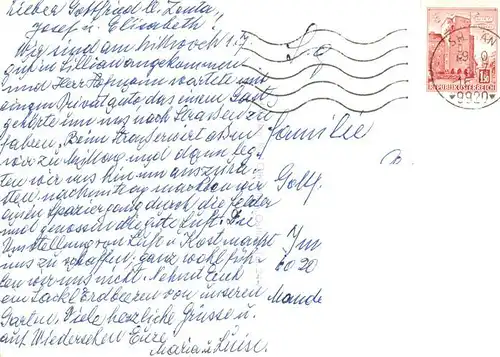 Lieber Gottfried u. Zenta,
Josef u. Elisabeth!
Wir sind am Mittwoch 1.7
gut in Sillian angekommen
und Herr warteten mit
einem Privatauto, das einem Gast
gehörte um uns nach Straßen zu
fahren. Beim Straßerwirt aßen
wir zu Mittag und dann leg-
ten wir uns hin um auszura-
sten nachmittag machten wir
einen Spaziergang durch die Felder
und genossen die gute Luft. Die
Umstellung von Luft u. Kost macht
uns zu schaffen, ganz wohl füh-
len wir uns nicht. Nehmt Euch
ein Sackl Erdbeeren von unserem
Garten. Viele herzliche Grüsse u.
auf Wiedersehen Eure
Maria u. Luise.
Familie
Gottf.
6020
REPUBLIK ÖSTERREICH
9920